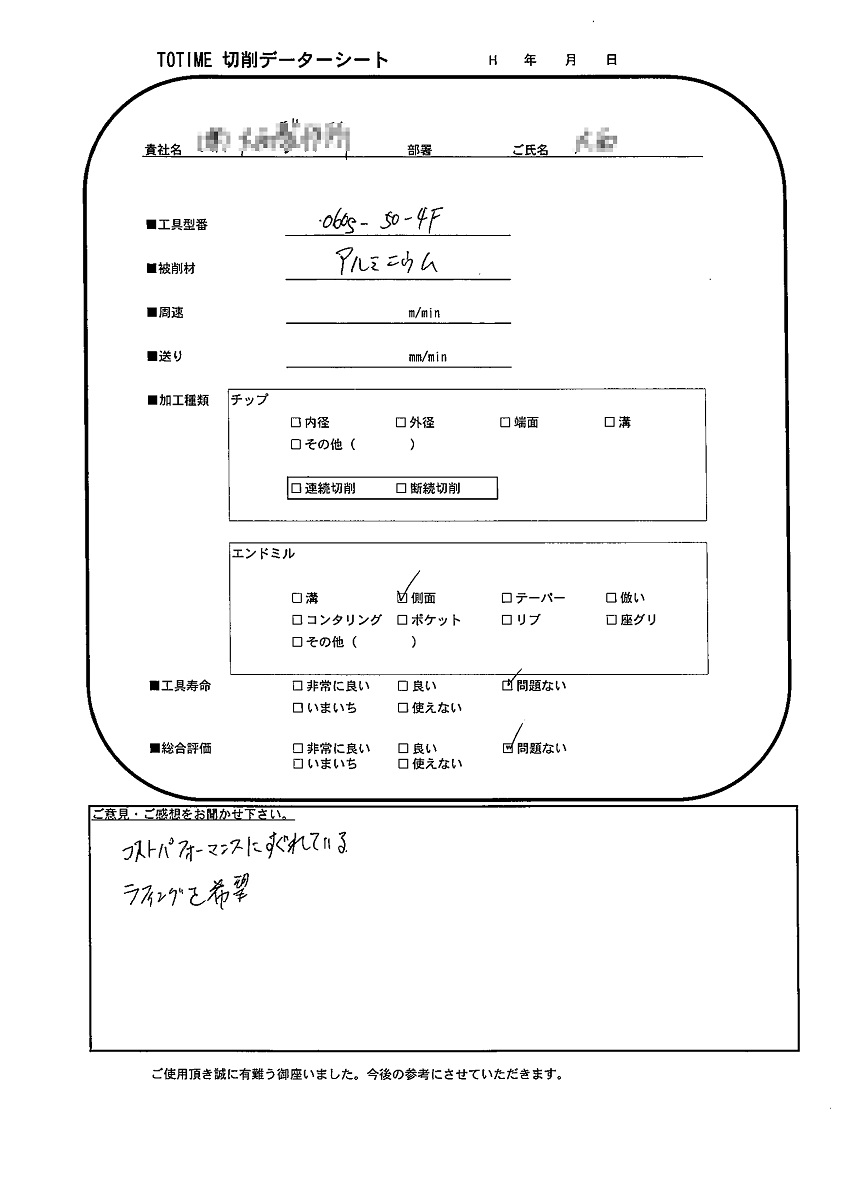 TOTIME 切削データーシート H 年 月 日
貴社名 部署 ご氏名
■工具型番 0605-50-4F
■被削材 アルミニウム
■周速 m/min
■送り mm/min
■加工種類 チップ
□内径 □外径 □端面 □溝
□その他（ ）
□連続切削 □断続切削
エンドミル
□溝 ☑側面 □テーパー □倣い
□コンタリング □ポケット □リブ □座グリ
□その他（ ）
■工具寿命 □非常に良い □良い ☑問題ない
□いまいち □使えない
■総合評価 □非常に良い □良い ☑問題ない
□いまいち □使えない
ご意見・ご感想をお聞かせ下さい。
コストパフォーマンスにすぐれている
ラフィングを希望
ご使用頂き誠に有難う御座いました。今後の参考にさせていただきます。